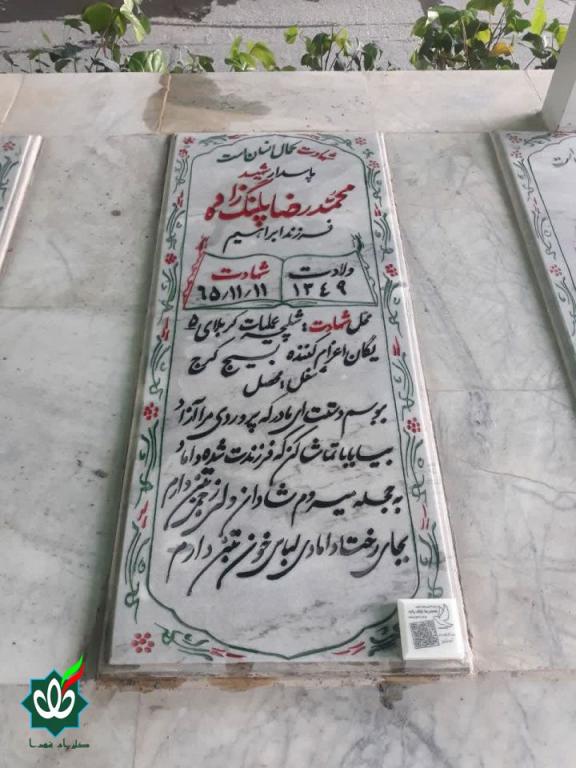 شهادت کمال انسان است
پاسدار شهید
محمدرضا پلنگ زاده
فرزند ابراهیم
ولادت
۱۳۴۹
شهادت
۶۵/۱۱/۱۱
محل شهادت: شلمچه عملیات کربلای ۵
یگان اعزام کننده بسیج کرج
شغل: محصل
ببوسم دستت ای مادر که پروردی مرا آزاد
بیا بابا تماشا کن که فرزندت شده داماد
به حجله میروم شادان دلی زخمی به تن دارم
بجای رخت دامادی لباس خون بتن دارم
گلزار شهدا